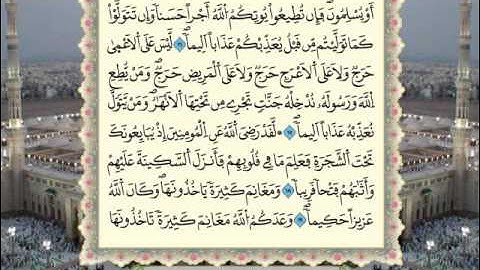 أَوْ يُسْلِمُونَۖ فَإِن تُطِيعُواْ يُوتِكُمُ اُللَّهُ أَجْراً حَسَناٗ وَإِن تَتَوَلَّوْاْ
كَمَا تَوَلَّيْتُم مِّن قَبْلُ يُعَذِّبْكُمْ عَذَاباً أَلِيماٗۖ ١٦ لَّيْسَ عَلَى اَلَاعْمَىٰ
حَرَجٞ وَلَا عَلَى اَلَاعْرَجِ حَرَجٞ وَلَا عَلَى اَلْمَرِيضِ حَرَجٞۖ وَمَنْ يُّطِعِ
اِللَّهَ وَرَسُولَهُۥ نُدْخِلْهُ جَنَّٰتٖ تَجْرِے مِن تَحْتِهَا اَلَانْهَٰرُۖ وَمَنْ يَّتَوَلَّ
نُعَذِّبْهُ عَذَاباً أَلِيماٗۖ ١٧ ۞ لَّقَدْ رَضِيَ اَللَّهُ عَنِ اِلْمُومِنِينَ إِذْ يُبَايِعُونَكَ
تَحْتَ اَلشَّجَرَةِ فَعَلِمَ مَا فِے قُلُوبِهِمْ فَأَنزَلَ اَلسَّكِينَةَ عَلَيْهِمْ
وَأَثَٰبَهُمْ فَتْحاٗ قَرِيباٗ ١٨ وَمَغَانِمَ كَثِيرَةٗ يَاخُذُونَهَاۖ وَكَانَ اَللَّهُ
عَزِيزاً حَكِيماٗۖ ١٩ وَعَدَكُمُ اُللَّهُ مَغَانِمَ كَثِيرَةٗ تَاخُذُونَهَا